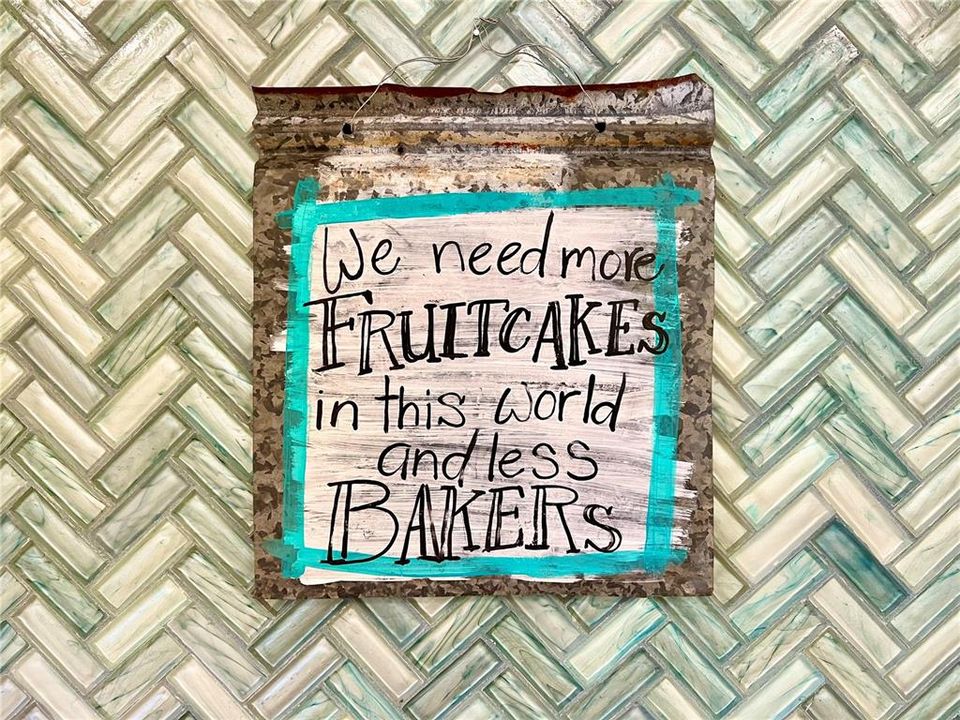 We need more
FRUITCAKES
in this world
and less
BAKERS